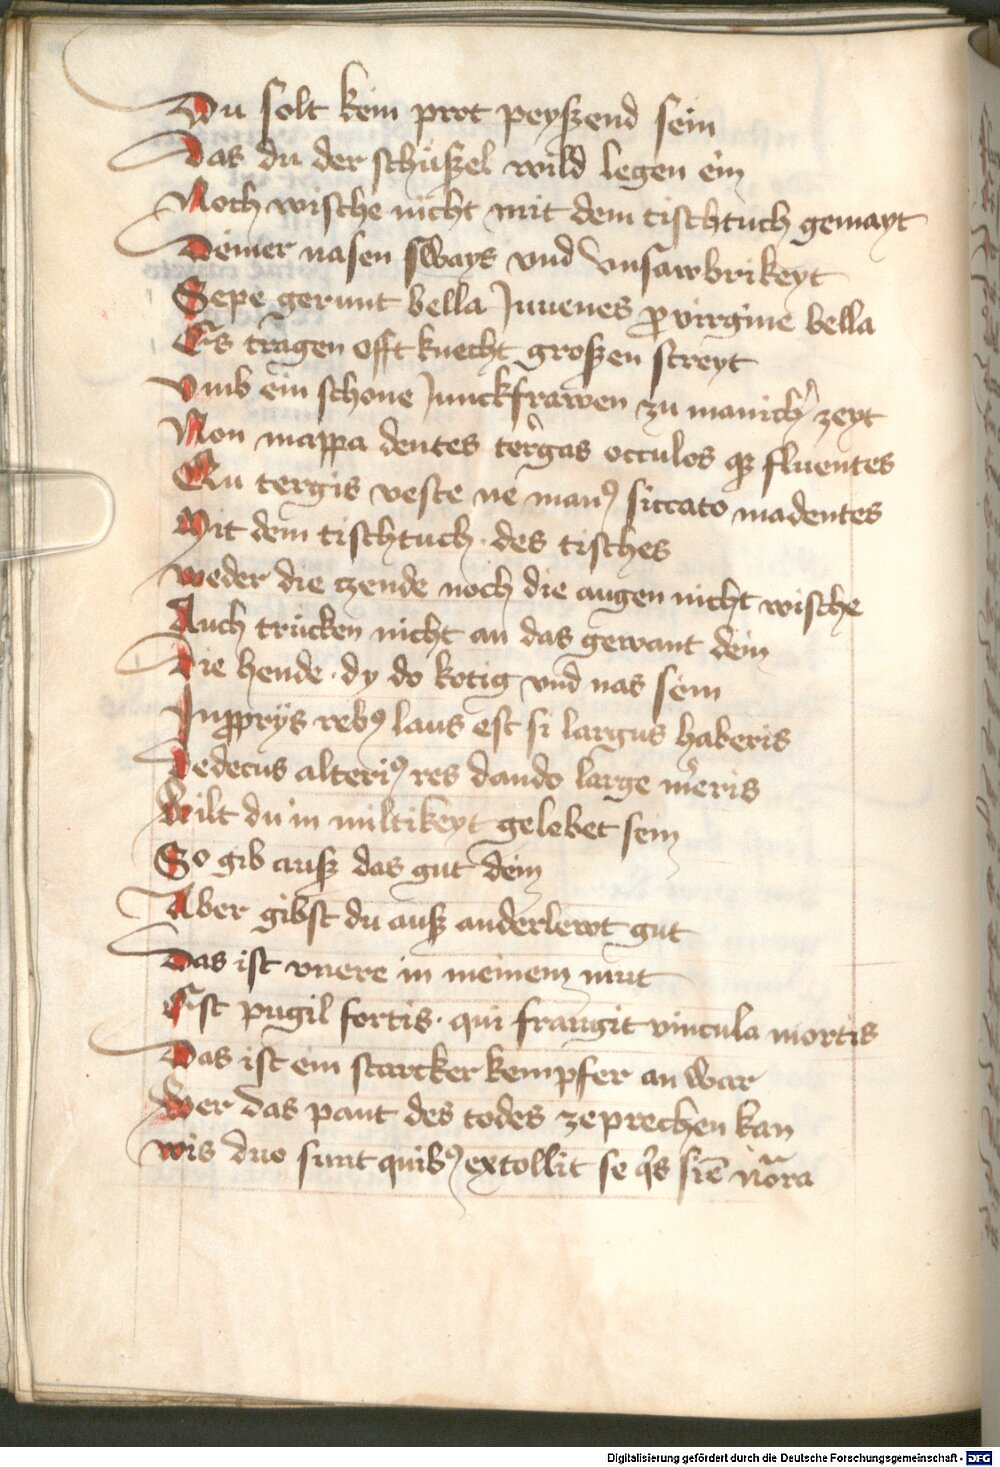 Du solt kein prot peyszend sein
Das du der schüszel wild legen ein
Noch wische nicht mit dem tischtuch gemayt
Deiner nasen sways vnd vnsawbrikeyt
Sepe gerunt bella Juuenes ꝓ virgine bella
Es tragen offt knecht groszen streyt
Vmb ein schone Junckfrawen zu manicher zeyt
Non mappa dentes tergas occulos qꝫ fluentes
In tergis veste ne manꝰ siccato madentes
Mit dem tischtuch · des tisches
weder die czende noch die augen nicht wische
Auch trücken nicht an das gewant dein
Die hende · dy do kotig vnd nas sein
In ꝓprijs rebꝰ laus est si largus haberis
Dedecus alteriꝰ res dando large meris
Wilt du in miltikeyt gelobet sein
So gib ausz das gut dein
Aber gibst du ausz anderlewt gut
Das ist vnere in meinem mut
Est pugil fortis · qui frangit vincula mortis
Das ist ein starcker kempfer an war
Wer das pant des todes zeprechen kan
wis duo sunt quibꝰ extollit se qis sīe nora
Digitalisierung gefördert durch die Deutsche Forschungsgemeinschaft - DFG